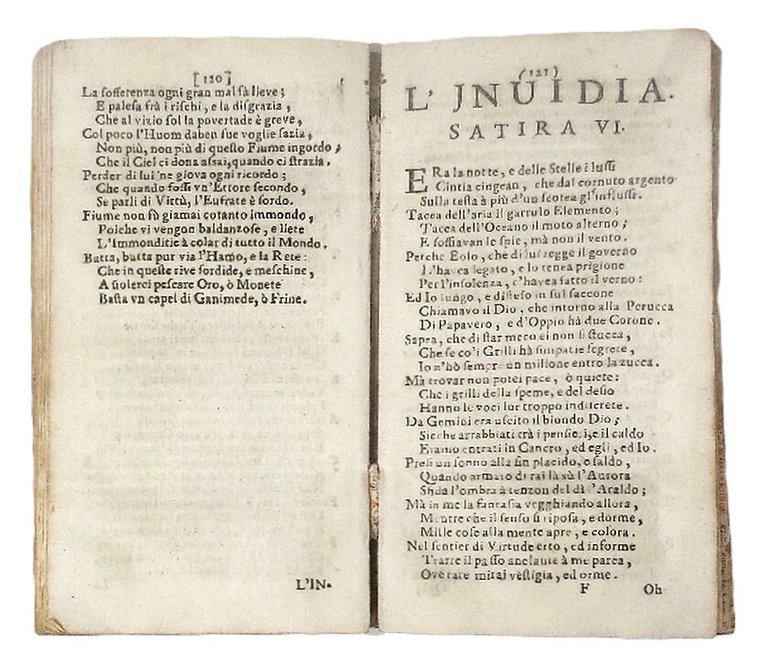 [120]
La sofferenza ogni gran mal fà lieve;
E palesa frà i rischi, e la disgrazia,
Che al vizio sol la povertade è greve,
Col poco l'Huom daben sue voglie sazia,
Non più, non più di questo Fiume ingordo;
Che il Ciel ci dona assai, quando ci strazia.
Perder di lui 'ne giova ogni ricordo;
Che quando fossi vn'Ettore secondo,
Se parli di Virtù, l'Eufrate è sordo.
Fiume non fù giamai cotanto immondo,
Poiche vi vengon baldanzose, e liete
L'Immonditie à colar di tutto il Mondo.
Butta, butta pur via l'Hamo, e la Rete:
Che in queste rive sordide, e meschine,
A siolerci pescare Oro, ò Monete
Basta vn capel di Ganimede, ò Frine.
L'IN-
(121)
L' JNUIDIA.
SATIRA VI.
ERa la notte, e delle Stelle i lussi
Cintia cingean, che dal cornuto argento
Sulla testa à più d'un scotea gl'influssi.
Tacea dell'aria il garrulo Elemento;
Tacea dell'Oceano il moto alterno;
E soffiavan le spie, mà non il vento.
Perche Eolo, che di lui regge il governo
L'havea legato, e lo tenea prigione
Per l'insolenza, c'havea fatto il verno:
Ed Io lungo, e disteso in sul saccone
Chiamavo il Dio, che intorno alla Perucca
Di Papavero, e d'Oppio hà due Corone.
Sapra, che di star meco ei non si stucca,
Che se co'i Grilli hà simpatie segrete,
Io n'hò sempre un milione entro la zucca.
Mà trovar non potei pace, ò quiete:
Che i grilli della speme, e del desio
Hanno le voci lor troppo indiscrete.
Da Gemini era uscito il biondo Dio;
Sicche arrabbiati trà i pensieri, e il caldo
Eramo entrati in Cancro, ed egli, ed Io.
Presi un sonno alla fin placido, e saldo,
Quando armato di rai là sù l'Aurora
Sfida l'ombra à tenzon del dì l'Araldo;
Mà in me la fantasia vegghiando allora,
Mentre che il senso si riposa, e dorme,
Mille cose alla mente apre, e colora.
Nel sentier di Virtude erto, ed informe
Trarre il passo anelante à me parea,
Ove rare mirai vestigia, ed orme.
F
Oh